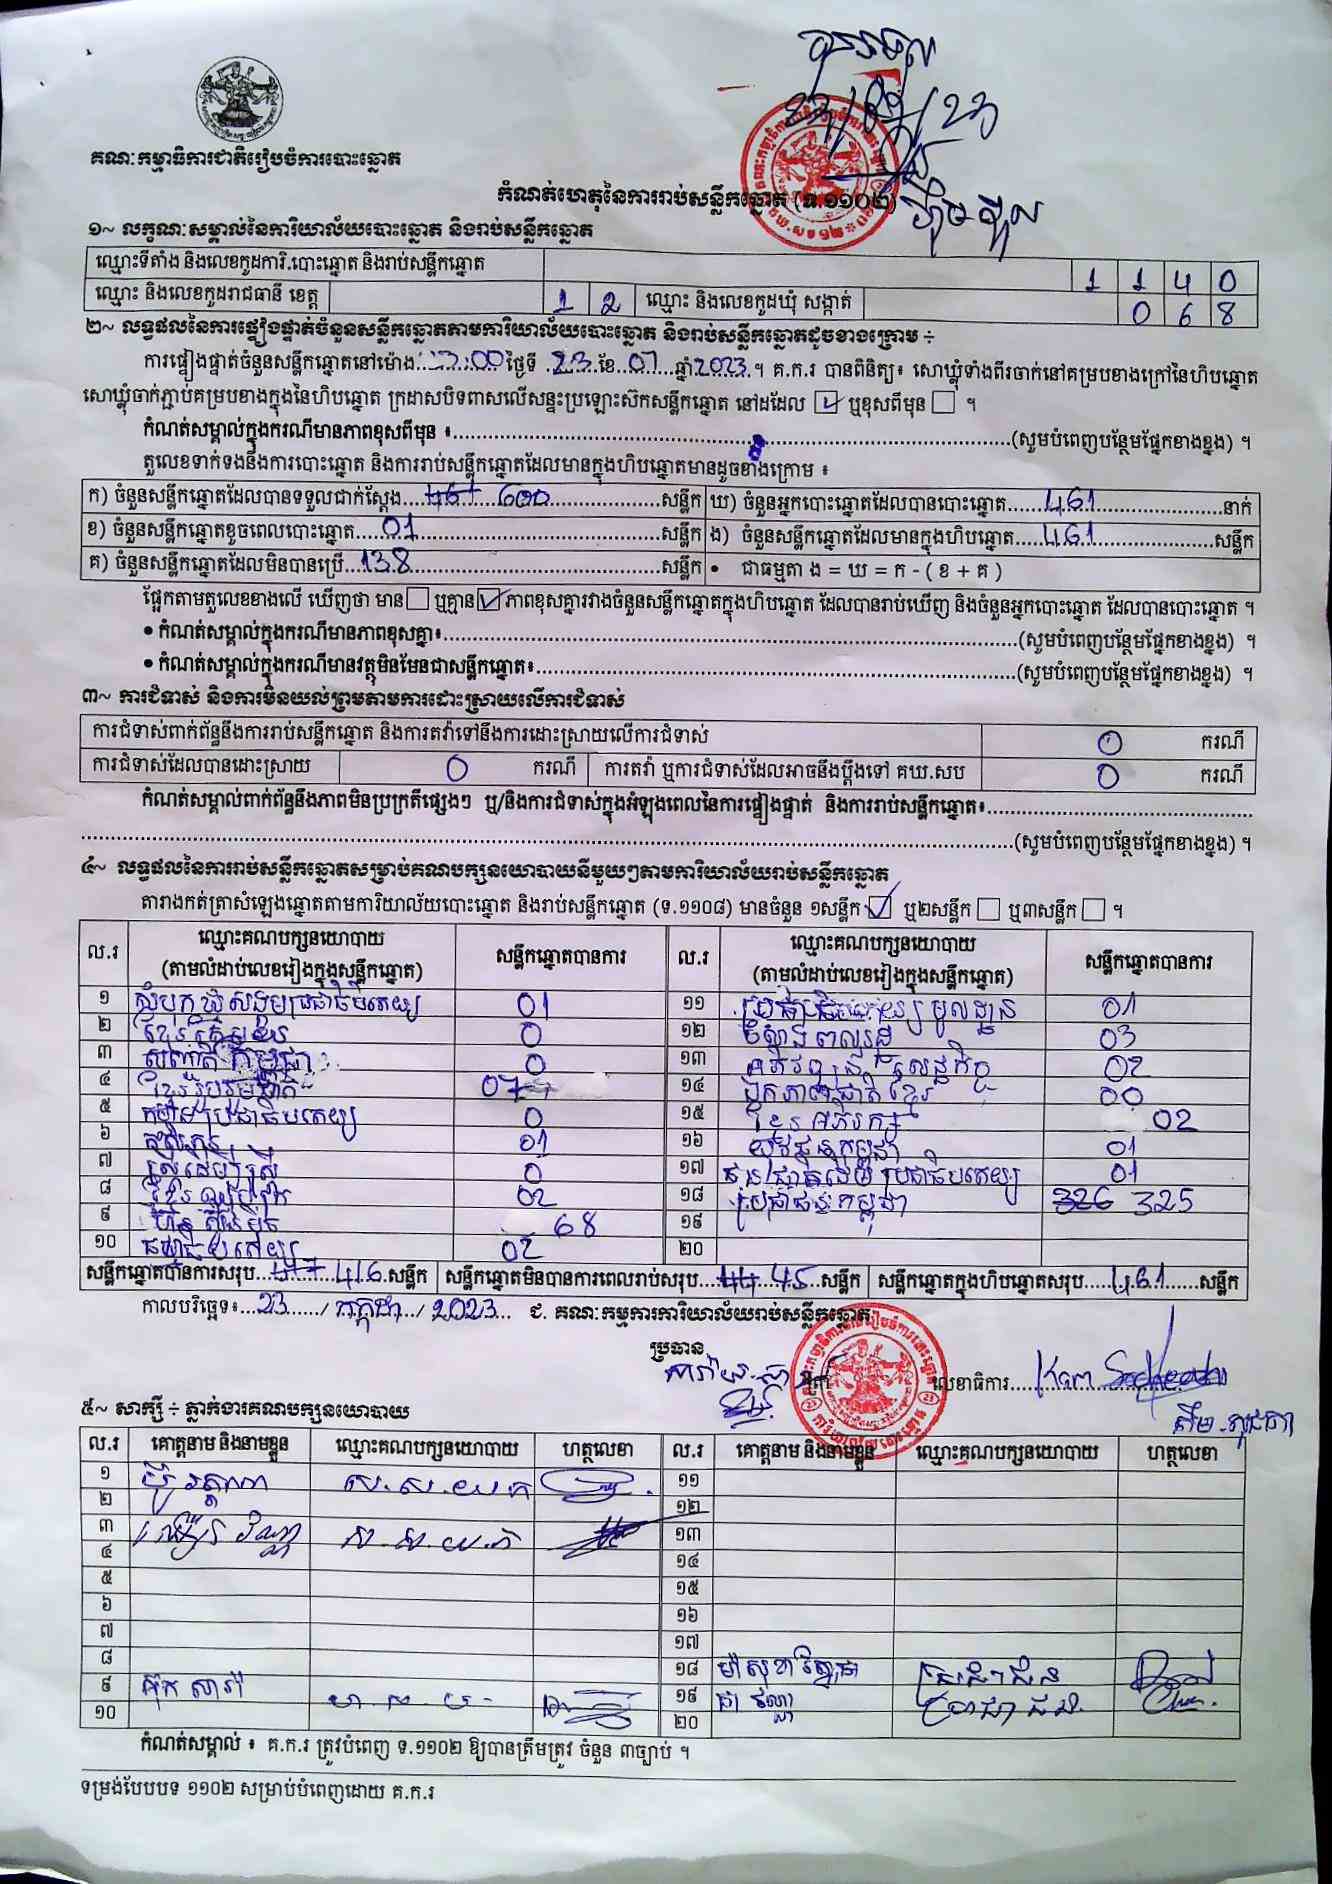 គណៈកម្មាធិការជាតិរៀបចំការបោះឆ្នោត
កំណត់ហេតុនៃការរាប់សន្លឹកឆ្នោត (ទ.១១០២)
១~ លក្ខណៈសម្គាល់នៃការិយាល័យបោះឆ្នោត និងរាប់សន្លឹកឆ្នោត
ឈ្មោះទីតាំង និងលេខកូដការិ.បោះឆ្នោត និងរាប់សន្លឹកឆ្នោត 1 1 4 0
ឈ្មោះ និងលេខកូដរាជធានី ខេត្ត 1 2 ឈ្មោះ និងលេខកូដឃុំ សង្កាត់ 0 6 8
២~ លទ្ធផលនៃការផ្ទៀងផ្ទាត់ចំនួនសន្លឹកឆ្នោតតាមការិយាល័យបោះឆ្នោត និងរាប់សន្លឹកឆ្នោតដូចខាងក្រោម ÷
ការផ្ទៀងផ្ទាត់ចំនួនសន្លឹកឆ្នោតនៅម៉ោង :00 ថ្ងៃទី 23 ខែ 07 ឆ្នាំ 2023 ។ គ.ក.រ បានពិនិត្យ៖ សោឃ្លុំទាំងពីរចាក់នៅគម្របខាងក្រៅនៃហិបឆ្នោត
សោឃ្លុំចាក់ភ្ជាប់គម្របខាងក្នុងនៃហិបឆ្នោត ក្រដាសបិទពាសលើសន្ទះប្រឡោះស៊កសន្លឹកឆ្នោត នៅដដែល ☑ ឬខុសពីមុន ☐ ។
កំណត់សម្គាល់ក្នុងករណីមានភាពខុសពីមុន ៖ (សូមបំពេញបន្ថែមផ្នែកខាងខ្នង) ។
តួលេខទាក់ទងនឹងការបោះឆ្នោត និងការរាប់សន្លឹកឆ្នោតដែលមានក្នុងហិបឆ្នោតមានដូចខាងក្រោម ៖
ក) ចំនួនសន្លឹកឆ្នោតដែលបានទទួលជាក់ស្តែង 461 600 សន្លឹក ឃ) ចំនួនអ្នកបោះឆ្នោតដែលបានបោះឆ្នោត 461 នាក់
ខ) ចំនួនសន្លឹកឆ្នោតខូចពេលបោះឆ្នោត 01 សន្លឹក ង) ចំនួនសន្លឹកឆ្នោតដែលមានក្នុងហិបឆ្នោត 461 សន្លឹក
គ) ចំនួនសន្លឹកឆ្នោតដែលមិនបានប្រើ 138 សន្លឹក • ជាធម្មតា ង = ឃ = ក - ( ខ + គ )
ផ្អែកតាមតួលេខខាងលើ ឃើញថា មាន ☐ ឬគ្មាន ☑ ភាពខុសគ្នារវាងចំនួនសន្លឹកឆ្នោតក្នុងហិបឆ្នោត ដែលបានរាប់ឃើញ និងចំនួនអ្នកបោះឆ្នោត ដែលបានបោះឆ្នោត ។
• កំណត់សម្គាល់ក្នុងករណីមានភាពខុសគ្នា៖ (សូមបំពេញបន្ថែមផ្នែកខាងខ្នង) ។
• កំណត់សម្គាល់ក្នុងករណីមានវត្ថុមិនមែនជាសន្លឹកឆ្នោត៖ (សូមបំពេញបន្ថែមផ្នែកខាងខ្នង) ។
៣~ ការជំទាស់ និងការមិនយល់ព្រមតាមការដោះស្រាយលើការជំទាស់
ការជំទាស់ពាក់ព័ន្ធនឹងការរាប់សន្លឹកឆ្នោត និងការតវ៉ាទៅនឹងការដោះស្រាយលើការជំទាស់ 0 ករណី
ការជំទាស់ដែលបានដោះស្រាយ 0 ករណី ការតវ៉ា ឬការជំទាស់ដែលអាចនឹងប្តឹងទៅ គឃ.សប 0 ករណី
កំណត់សម្គាល់ពាក់ព័ន្ធនឹងភាពមិនប្រក្រតីផ្សេងៗ ឬ/និងការជំទាស់ក្នុងអំឡុងពេលនៃការផ្ទៀងផ្ទាត់ និងការរាប់សន្លឹកឆ្នោត៖
(សូមបំពេញបន្ថែមផ្នែកខាងខ្នង) ។
៤~ លទ្ធផលនៃការរាប់សន្លឹកឆ្នោតសម្រាប់គណបក្សនយោបាយនីមួយៗតាមការិយាល័យរាប់សន្លឹកឆ្នោត
តារាងកត់ត្រាសំឡេងឆ្នោតតាមការិយាល័យបោះឆ្នោត និងរាប់សន្លឹកឆ្នោត (ទ.១១០៨) មានចំនួន ១សន្លឹក ☑ ឬ២សន្លឹក ☐ ឬ៣សន្លឹក ☐ ។
ល.រ ឈ្មោះគណបក្សនយោបាយ (តាមលំដាប់លេខរៀងក្នុងសន្លឹកឆ្នោត) សន្លឹកឆ្នោតបានការ ល.រ ឈ្មោះគណបក្សនយោបាយ (តាមលំដាប់លេខរៀងក្នុងសន្លឹកឆ្នោត) សន្លឹកឆ្នោតបានការ
១ សំបុកឃ្មុំសង្គមប្រជាធិបតេយ្យ 01 ១១ ប្រជាធិបតេយ្យមូលដ្ឋាន 01
២ 0 ១២ កម្លាំងពលរដ្ឋ 03
៣ សញ្ជាតិកម្ពុជា 0 ១៣ 02
៤ ខ្មែររួបរួមជាតិ 07 ១៤ ឯកភាពជាតិខ្មែរ 00
៥ កម្ពុជាប្រជាធិបតេយ្យ 0 ១៥ ខ្មែរអភិរក្ស 02
៦ 01 ១៦ យុវជនកម្ពុជា 01
៧ 0 ១៧ ជនជាតិដើមប្រជាធិបតេយ្យ 01
៨ 02 ១៨ ប្រជាជនកម្ពុជា 326 325
៩ ហ្វ៊ុនស៊ិនប៉ិច 68 ១៩
១០ 02 ២០
សន្លឹកឆ្នោតបានការសរុប 417 416 សន្លឹក សន្លឹកឆ្នោតមិនបានការពេលរាប់សរុប 44 45 សន្លឹក សន្លឹកឆ្នោតក្នុងហិបឆ្នោតសរុប 461 សន្លឹក
កាលបរិច្ឆេទ៖ 23 / កក្កដា / 2023 ជ. គណៈកម្មការការិយាល័យរាប់សន្លឹកឆ្នោត
ប្រធាន
លេខាធិការ
៥~ សាក្សី ÷ ភ្នាក់ងារគណបក្សនយោបាយ
ល.រ គោត្តនាម និងនាមខ្លួន ឈ្មោះគណបក្សនយោបាយ ហត្ថលេខា ល.រ គោត្តនាម និងនាមខ្លួន ឈ្មោះគណបក្សនយោបាយ ហត្ថលេខា
១ ១១
២ ១២
៣ ១៣
៤ ១៤
៥ ១៥
៦ ១៦
៧ ១៧
៨ ១៨ ប្រជាជន
៩ ១៩
១០ ២០
កំណត់សម្គាល់ ៖ គ.ក.រ ត្រូវបំពេញ ទ.១១០២ ឱ្យបានត្រឹមត្រូវ ចំនួន ៣ច្បាប់ ។
ទម្រង់បែបបទ ១១០២ សម្រាប់បំពេញដោយ គ.ក.រ